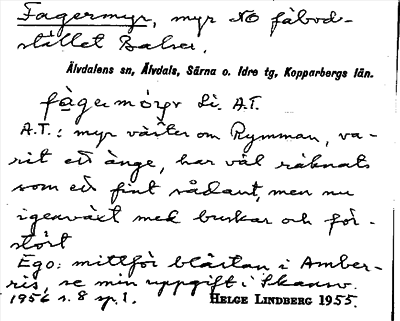 Fagermyr, myr NO fäbod-
stället Balser.
Älvdalens sn, Älvdals, Särna o. Idre tg, Kopparbergs län.
A.T.
A.T.: myr väster om Rymman, va-
rit ett änge, har väl räknats
som ett fint sådant, men nu
igenväxt med buskar och för-
stört
Ego: mittför blästan i Amber-
ris, se min uppgift i Skansv.
1956 s. 8 sp. 1.
HELGE LINDBERG 1955.